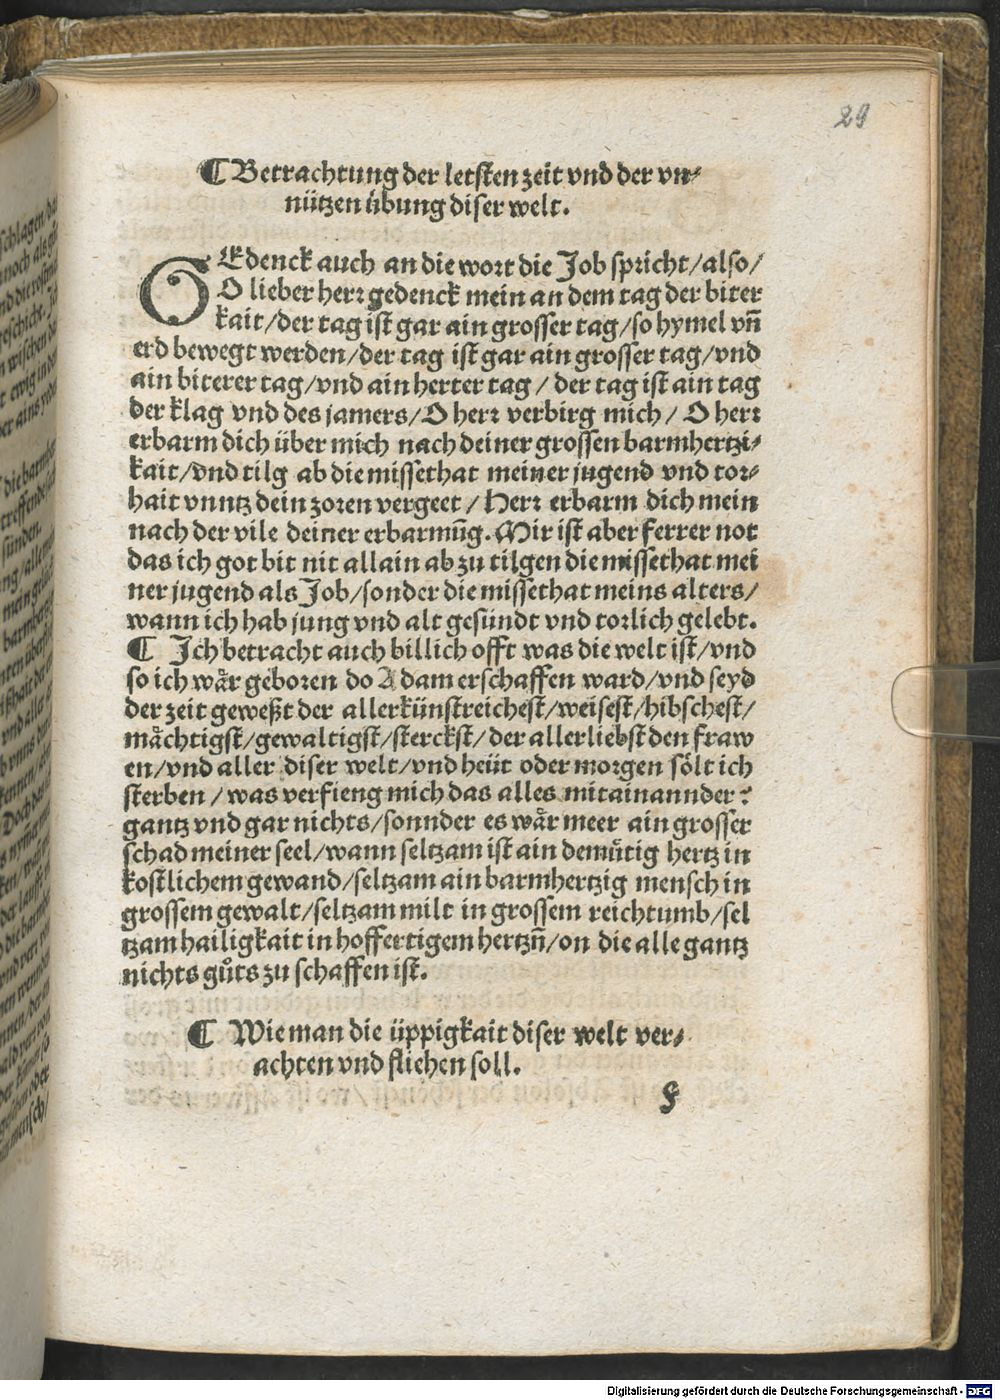 29
¶ Betrachtung der letsten zeit vnd der vn⸗
nützen übung diser welt.
GEdenck auch an die wort die Job spricht/also/
O lieber herr gedenck mein an dem tag der biter
kait/der tag ist gar ain grosser tag/so hymel vñ
erd bewegt werden/der tag ist gar ain grosser tag/vnd
ain biterer tag/vnd ain herter tag/ der tag ist ain tag
der klag vnd des jamers/O herr verbirg mich/ O herr
erbarm dich über mich nach deiner grossen barmhertzi⸗
kait/vnd tilg ab die missethat meiner jugend vnd tor⸗
hait vnntz dein zoren vergeet/ Herr erbarm dich mein
nach der vile deiner erbarmūg. Mir ist aber ferrer not
das ich got bit nit allain ab zu tilgen die missethat mei
ner jugend als Job/sonder die missethat meins alters/
wann ich hab jung vnd alt gesündt vnd torlich gelebt.
¶ Ich betracht auch billich offt was die welt ist/vnd
so ich waͤr geboren do Adam erschaffen ward/vnd seyd
der zeit geweßt der allerkünstreichest/weisest/hibschest/
maͤchtigst/gewaltigst/sterckst/ der allerliebst den fraw
en/vnd aller diser welt/vnd heüt oder morgen soͤlt ich
sterben/ was verfieng mich das alles mitainannder?
gantz vnd gar nichts/sonnder es waͤr meer ain grosser
schad meiner seel/wann seltzam ist ain demuͤtig hertz in
kostlichem gewand/seltzam ain barmhertzig mensch in
grossem gewalt/seltzam milt in grossem reichtumb/sel
tzam hailigkait in hoffertigem hertzñ/on die alle gantz
nichts guͦts zu schaffen ist.
¶ Wie man die üppigkait diser welt ver⸗
achten vnd fliehen soll.
f
Digitalisierung gefördert durch die Deutsche Forschungsgemeinschaft - DFG